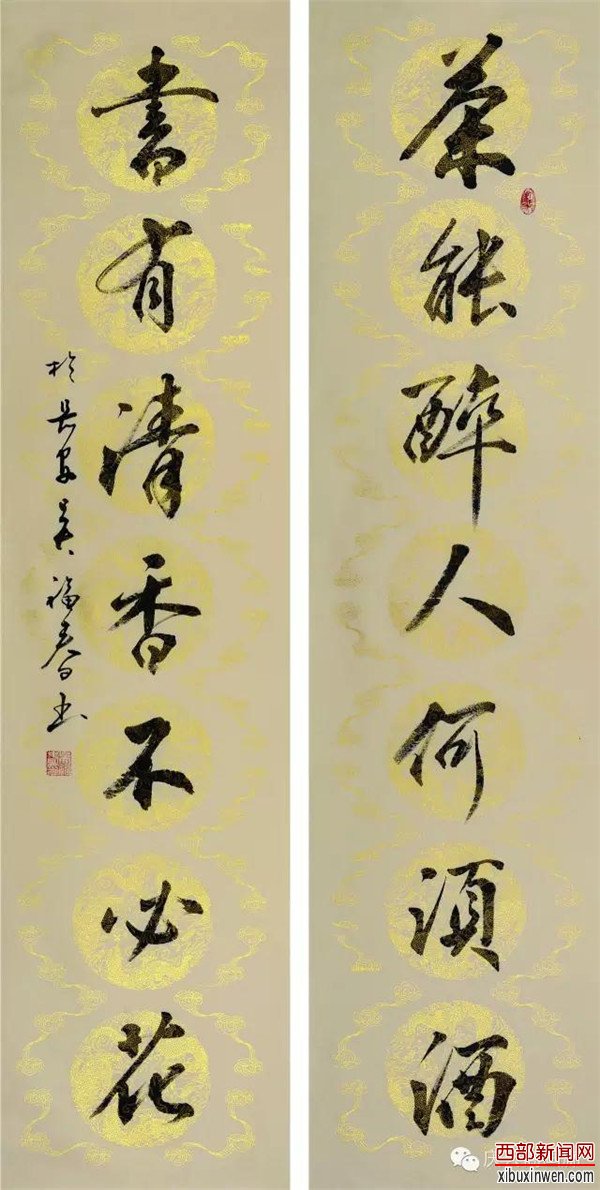 茶能醉人何須酒
書有清香不必花
於長安吳福春书
西部新闻网
xibuxinwen.com